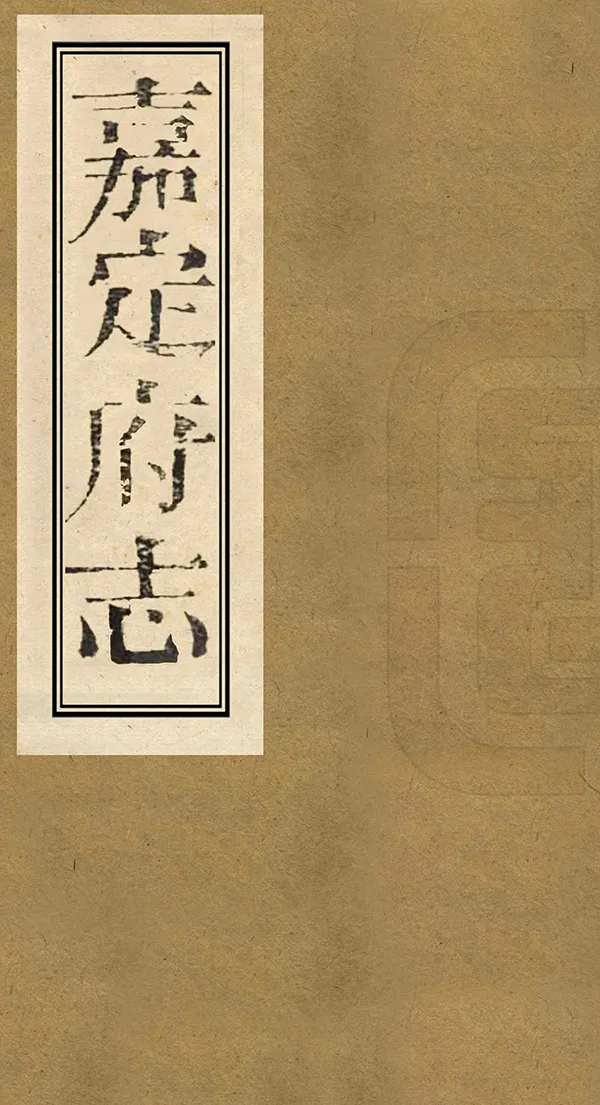 嘉定府志